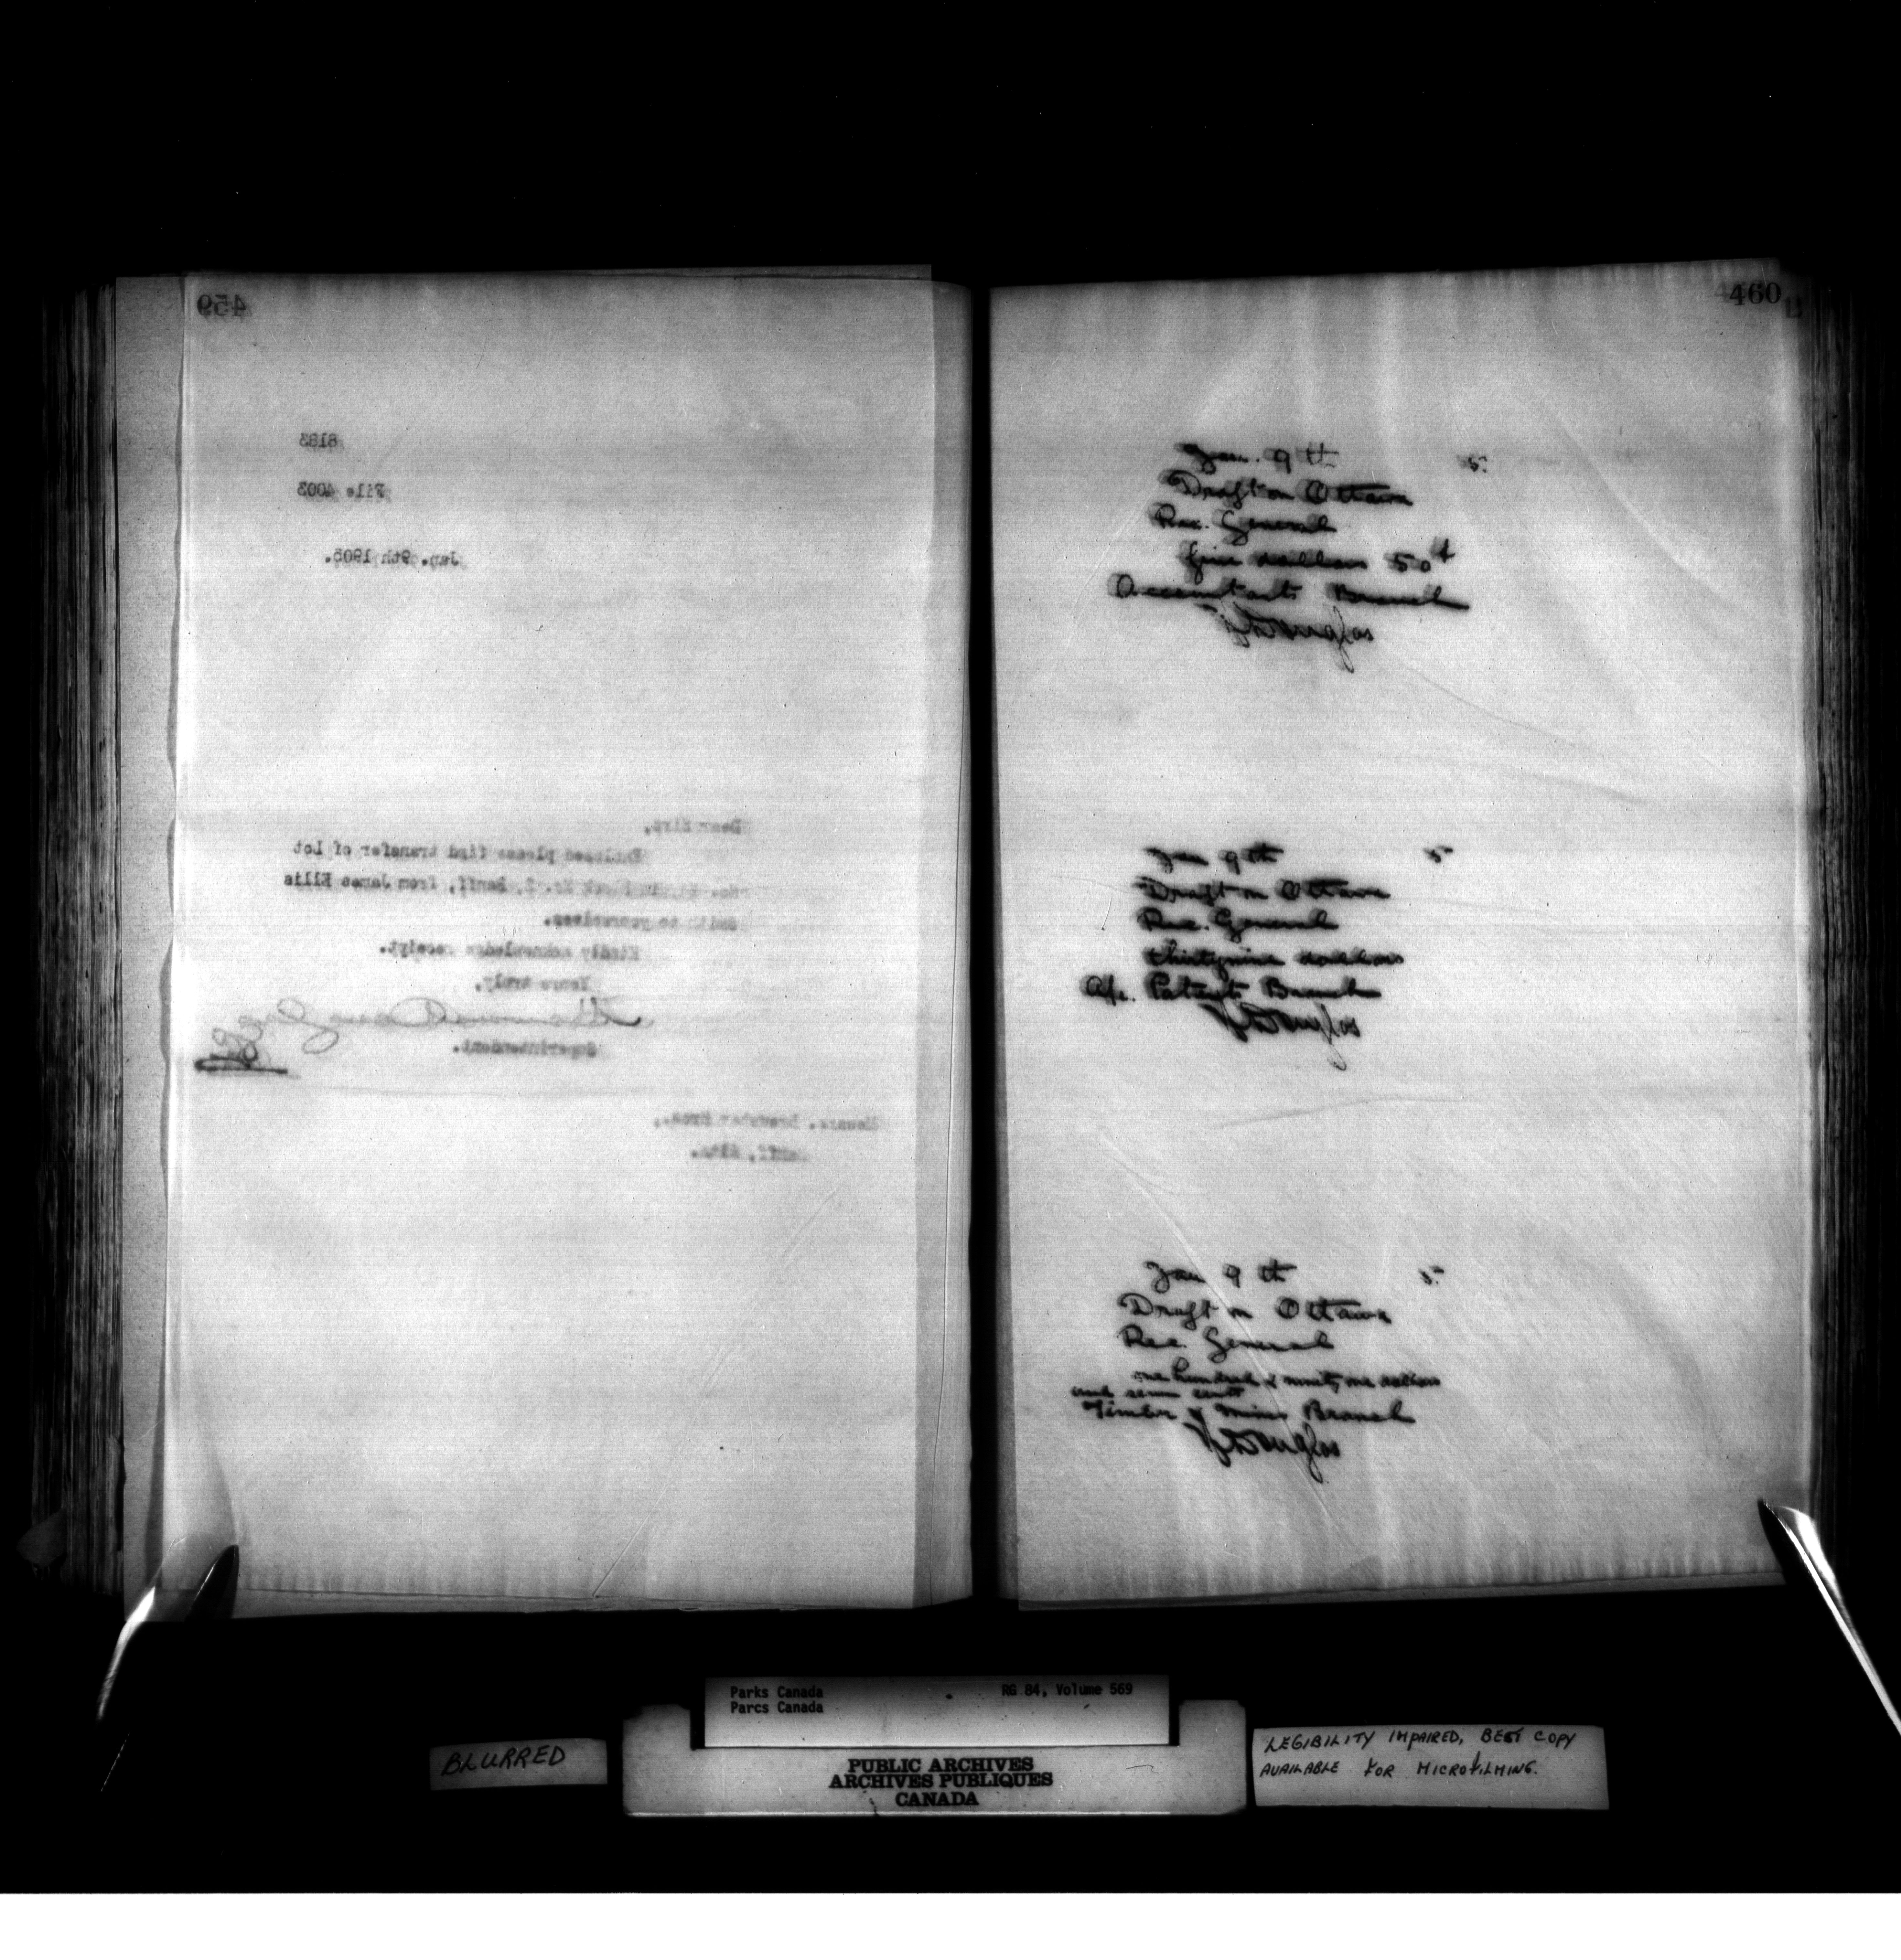 459
8183
File 4003
Jan. 9th 1905.
Dear Sirs,
Enclosed please find transfer of Lot
No. Block No. 2, Banff, from James Ellis
Smith to yourselves.
Kindly acknowledge receipt.
Yours truly,
Superintendent.
Messrs. Brewster Bros.,
Banff, Alta.
460
Jan. 9th 5
Draft on Ottawa
Rec. General
five dollars 50¢
Accountants Branch
Douglas
Jan 9th 5
Draft on Ottawa
Rec. General
thirtynine dollars
a/c. Patents Branch
Douglas
Jan 9th 5
Draft on Ottawa
Rec. General
one hundred & ninety one dollars
and seven cents
Timber & Mines Branch
Douglas
Parks Canada RG 84, Volume 569
Parcs Canada
BLURRED
PUBLIC ARCHIVES
ARCHIVES PUBLIQUES
CANADA
LEGIBILITY IMPAIRED, BEST COPY
AVAILABLE FOR MICROFILMING.